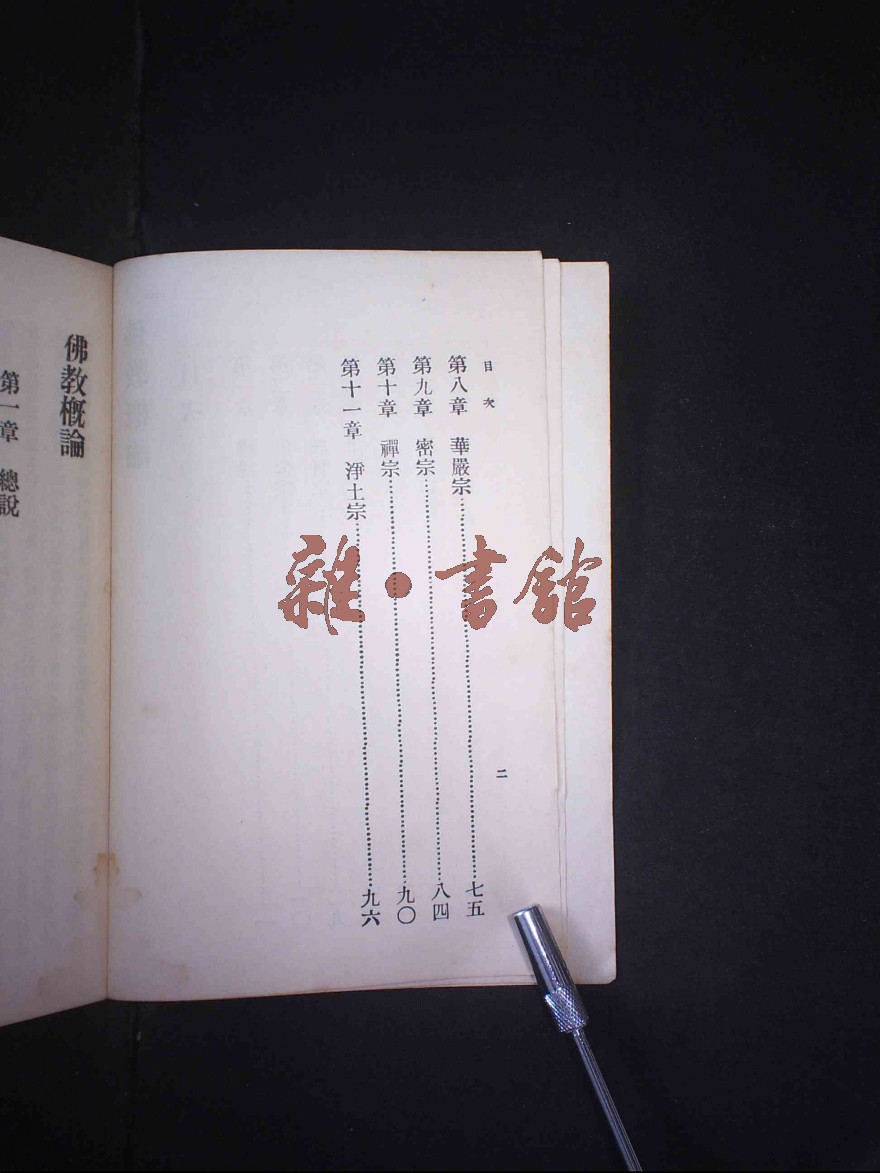 目次
第八章 華嚴宗……七五
第九章 密宗……八四
第十章 禪宗……九〇
第十一章 淨土宗……九六
二
佛教概論
第一章 總說
雜·書館